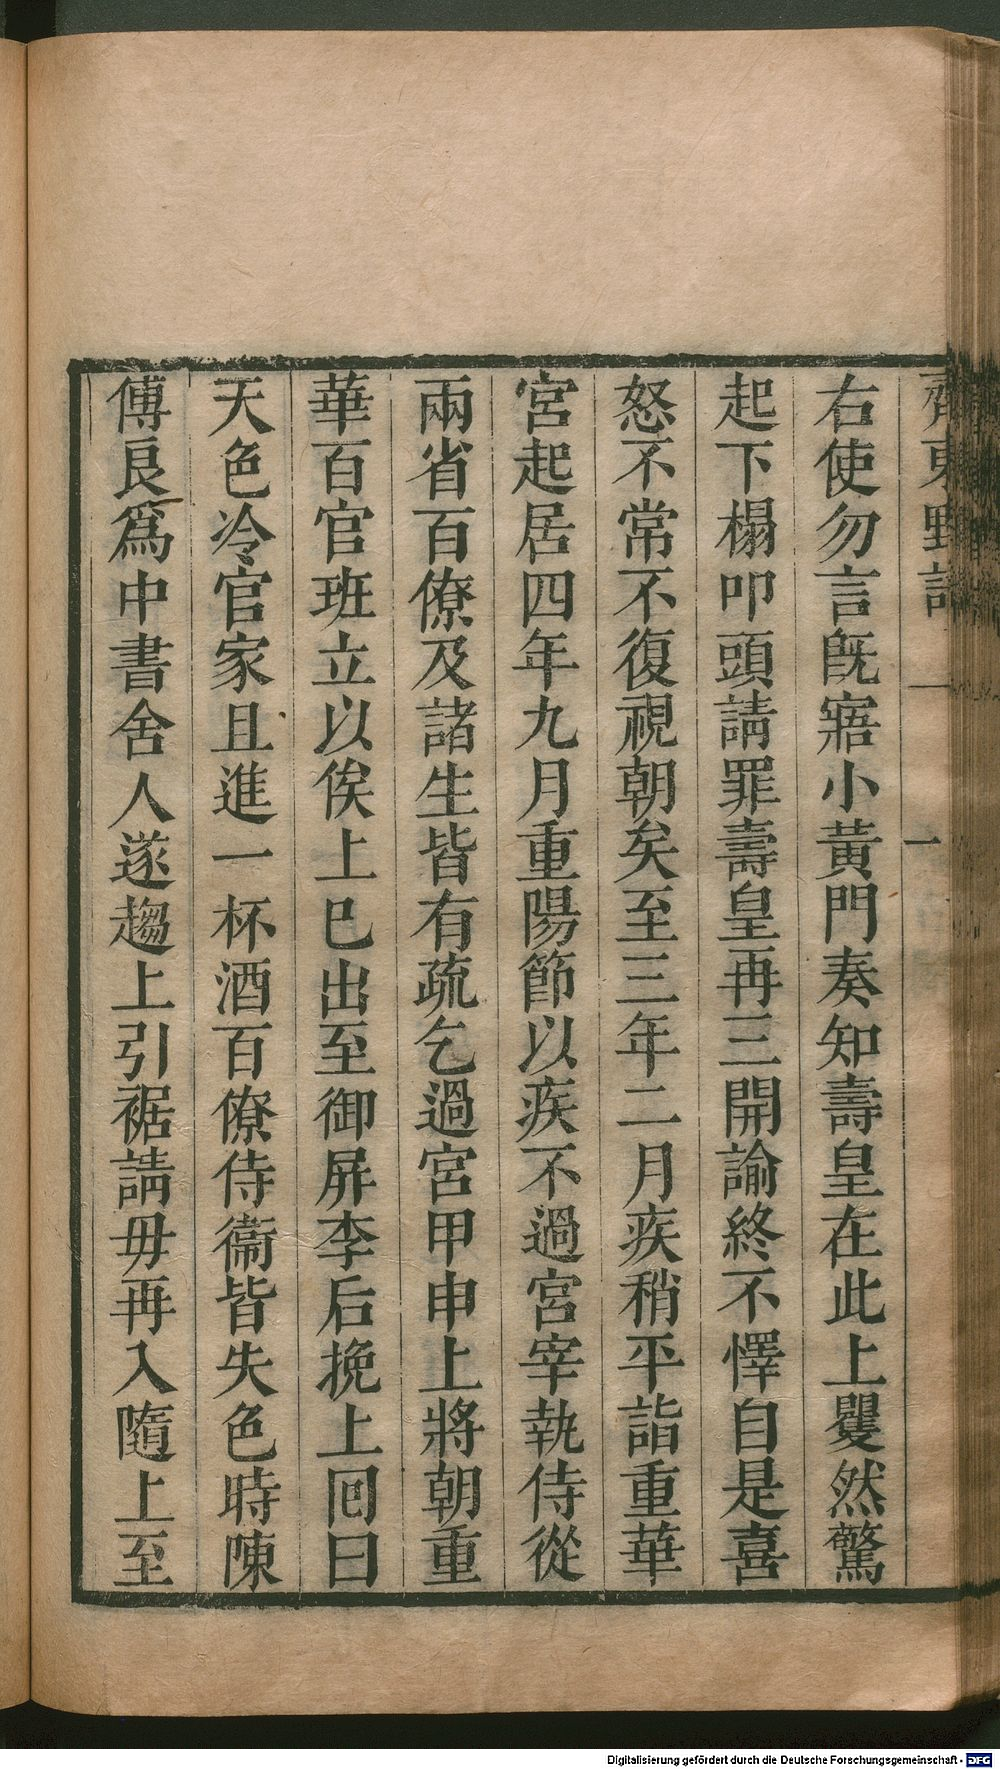 齊東野語
一
右使勿言旣寤小黃門奏知壽皇在此上矍然驚
起下榻叩頭請罪壽皇再三開諭終不懌自是喜
怒不常不復視朝矣至三年二月疾稍平詣重華
宮起居四年九月重陽節以疾不過宮宰執侍從
兩省百僚及諸生皆有疏乞過宮甲申上將朝重
華百官班立以俟上已出至御屏李后挽上回曰
天色冷官家且進一杯酒百僚侍衞皆失色時陳
傅良爲中書舍人遂趨上引裾請毋再入隨上至
Digitalisierung gefördert durch die Deutsche Forschungsgemeinschaft - DFG